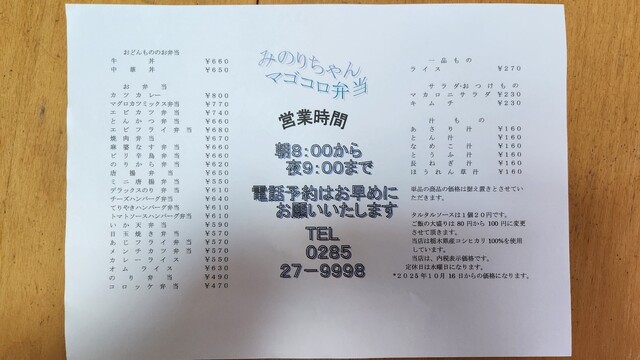 おどんもののお弁当
牛丼 ￥660
中華丼 ￥650
お弁当
カツカレー ￥800
マグロカツミックス弁当 ￥770
エビカツ弁当 ￥740
とんかつ弁当 ￥660
エビフライ弁当 ￥680
焼肉弁当 ￥670
麻婆なす弁当 ￥660
ピリ辛鳥弁当 ￥660
のりから弁当 ￥620
唐揚弁当 ￥650
ミニ唐揚弁当 ￥550
デラックスのり弁当 ￥610
チーズハンバーグ弁当 ￥640
てりやきハンバーグ弁当 ￥610
トマトソースハンバーグ弁当 ￥610
いか天弁当 ￥590
目玉焼き弁当 ￥570
あじフライ弁当 ￥570
メンチカツ弁当 ￥570
カレーライス ￥550
オムライス ￥630
のり弁当 ￥490
コロッケ弁当 ￥470
みのりちゃん
マゴコロ弁当
営業時間
朝8：00から
夜9：00まで
電話予約はお早めに
お願いいたします
TEL
0285
27－9998
一品もの
ライス ￥270
サラダ・おつけもの
マカロニサラダ ￥230
キムチ ￥230
汁もの
あさり汁 ￥160
とん汁 ￥160
なめこ汁 ￥160
とうふ汁 ￥160
長ねぎ汁 ￥160
ほうれん草汁 ￥160
単品の商品の価格は据え置きとさせてい
ただきます。
タルタルソースは1個20円です。
ご飯の大盛りは80円から100円に変更
させて頂きます。
当店は栃木県産コシヒカリ100%を使用
しています。
当店は、内税表示価格です。
定休日は水曜日になります。
*2025年10月16日からの価格になります。